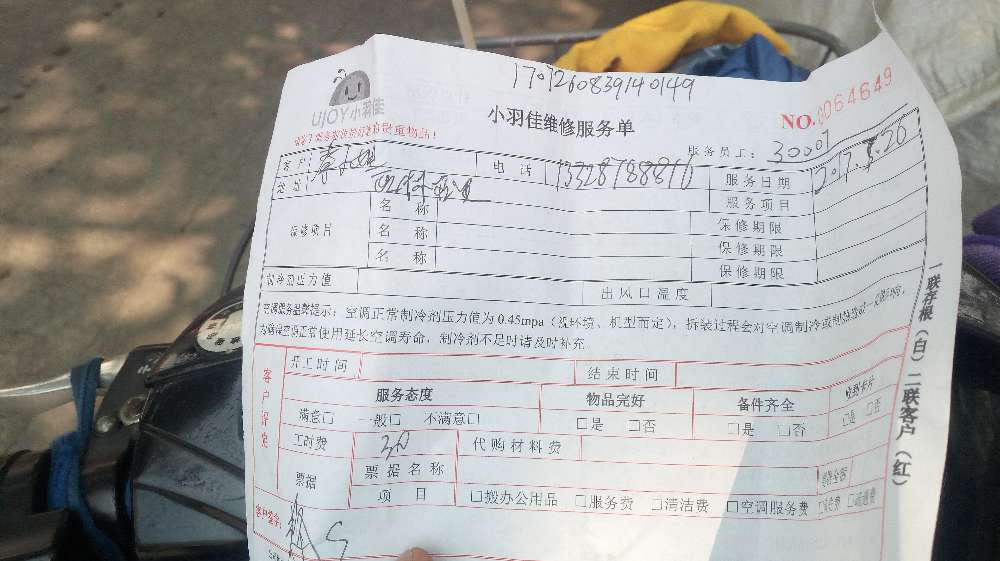 17072608391 40149
UJOY小羽佳
小羽佳维修服务单
NO.0064649
服务员工: 30007
客户: 电话 13328788810 服务日期
服务项目
保修项片 名称 保修期限
名称 保修期限
名称 保修期限
制冷剂压力值 出风口温度
空调服务温馨提示:空调正常制冷剂压力值为0.45mpa(视环境、机型而定),拆装过程会对空调制冷或制热造成一定影响,
为确保空调正常使用延长空调寿命,制冷剂不足时请及时补充
客户评定
开工时间 结束时间
服务态度 物品完好 备件齐全
满意□ 一般□ 不满意□ □是 □否 □是 □否 □是 □否
工时费 30 代购材料费
票据 票据名称
项目 □搬办公用品 □服务费 □清洁费 □空调服务费
客户签字:
一联存根(白)二联客户(红)